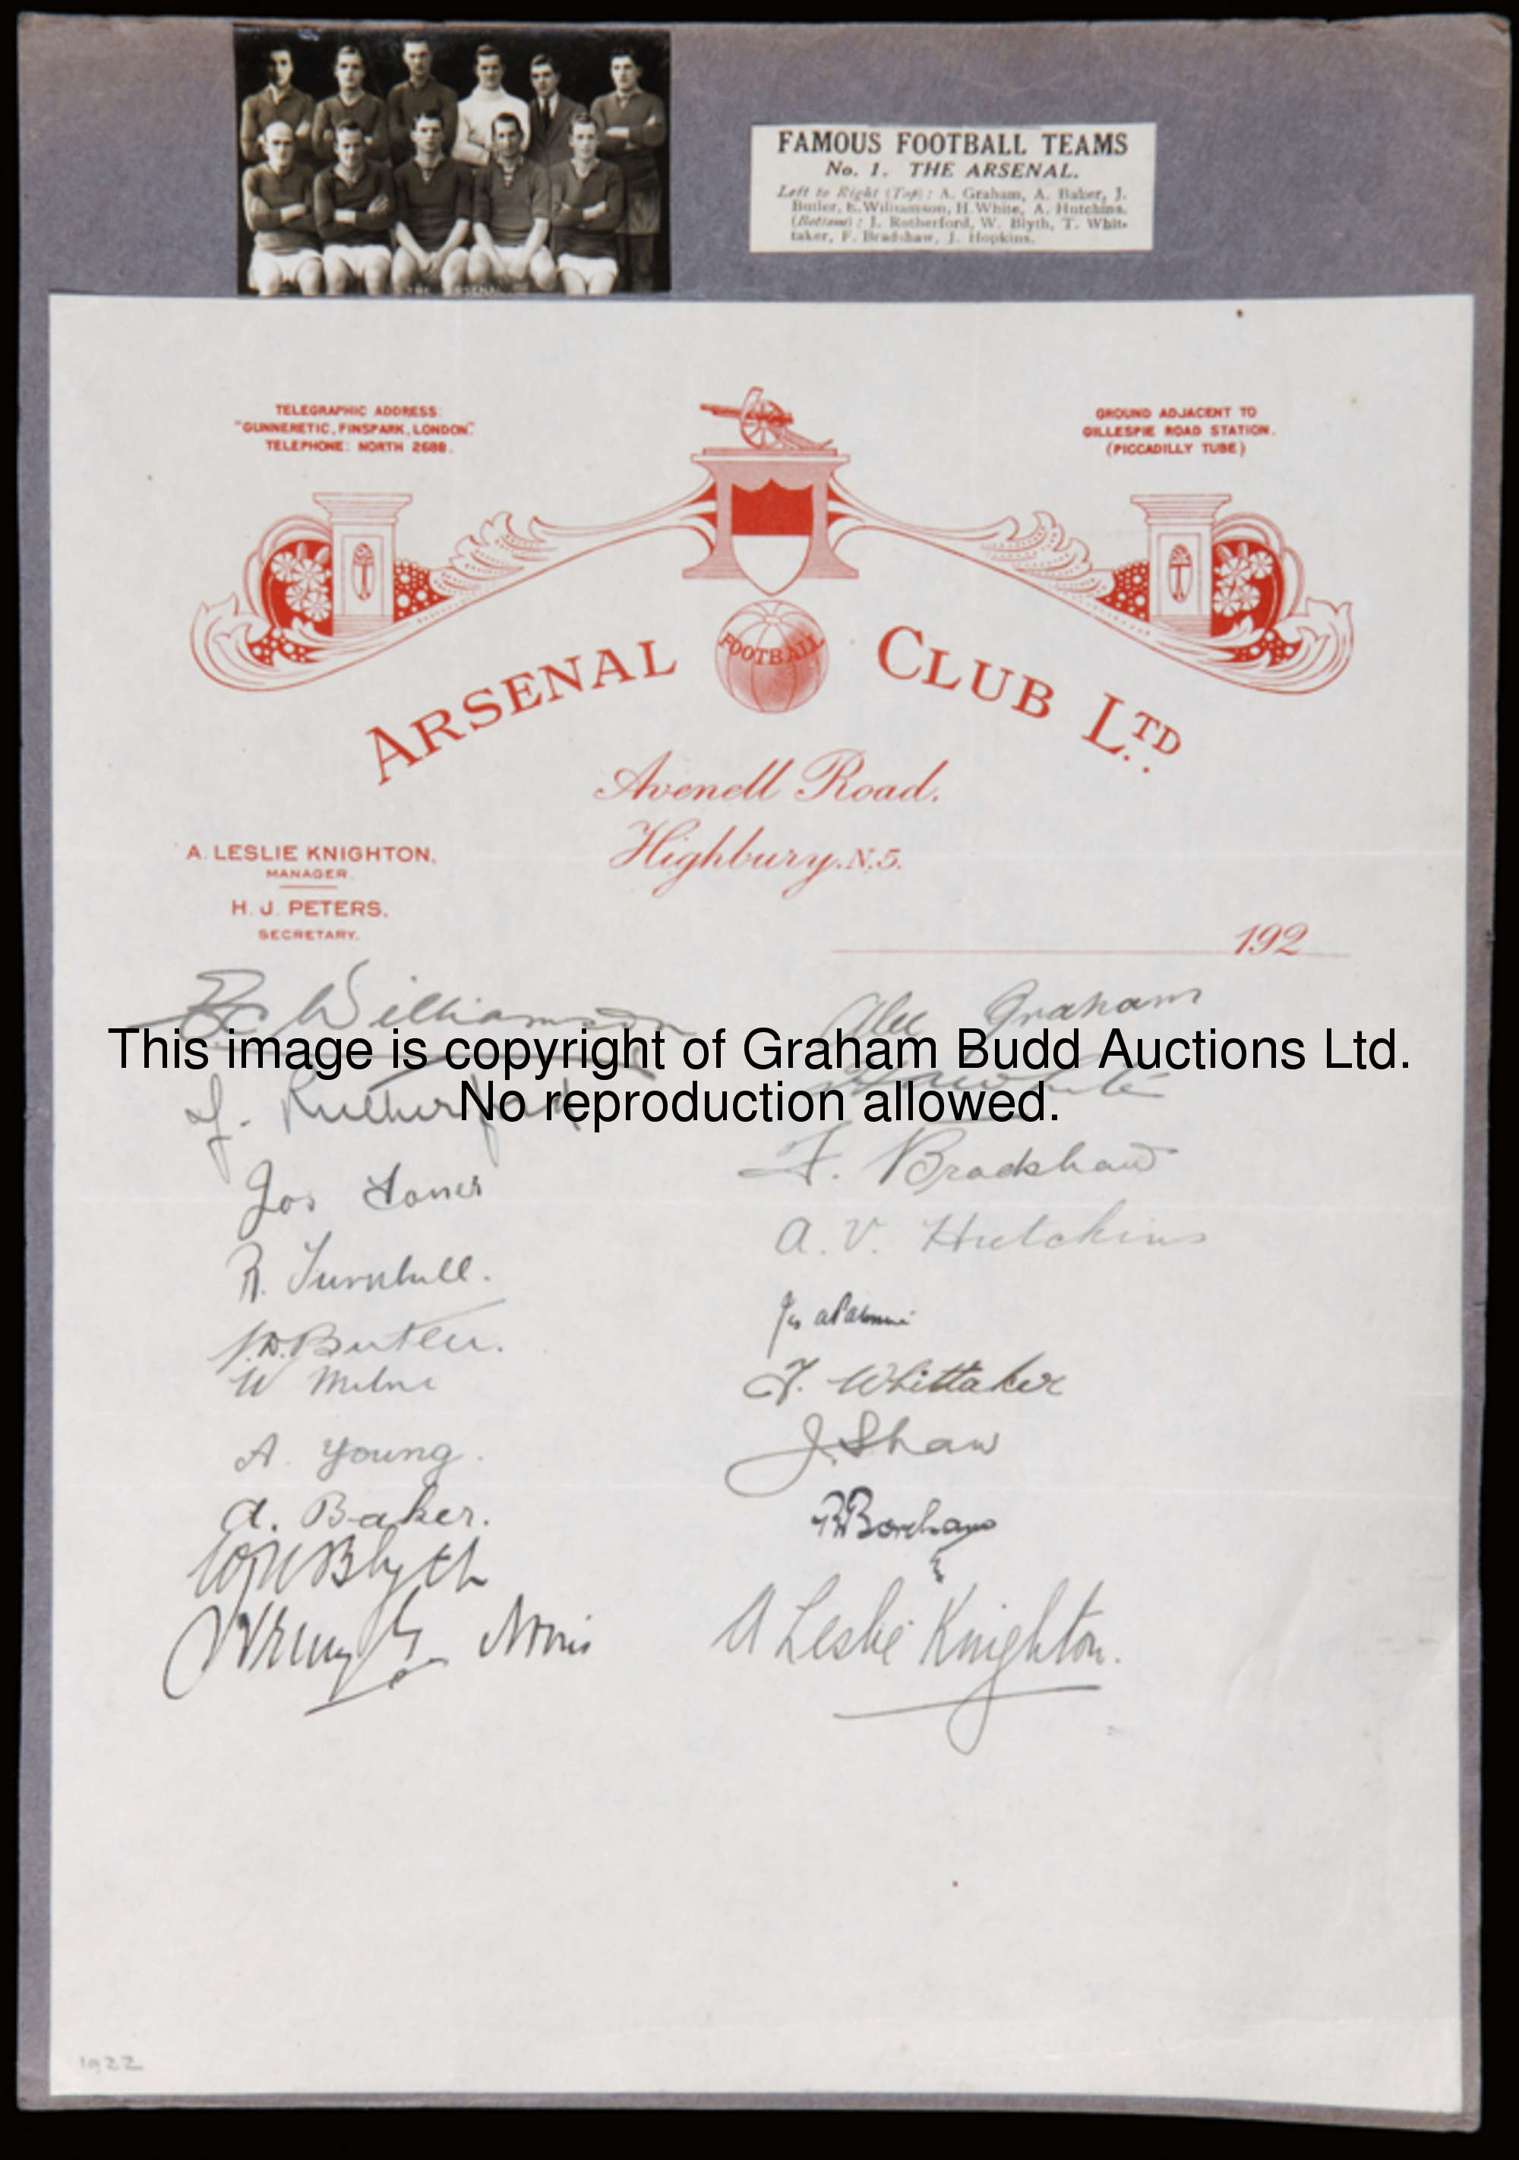 FAMOUS FOOTBALL TEAMS
No. 1. THE ARSENAL.
Left to Right (Top) : A. Graham, A. Baker, J.
Butler, E. Williamson, H. White, A. Hutchins.
(Bottom) : J. Rutherford, W. Blyth, T. Whit-
taker, F. Bradshaw, J. Hopkins.
THE ARSENAL
TELEGRAPHIC ADDRESS:
"GUNNERETIC, FINSPARK, LONDON."
TELEPHONE: NORTH 2688.
GROUND ADJACENT TO
GILLESPIE ROAD STATION.
(PICCADILLY TUBE)
ARSENAL FOOTBALL CLUB LTD.
Avenell Road,
Highbury. N.5.
A. LESLIE KNIGHTON,
MANAGER.
H. J. PETERS,
SECRETARY.
192
E. Williamson
Alec Graham
This image is copyright of Graham Budd Auctions Ltd.
No reproduction allowed.
J. Rutherford
White
Jos Toner
F. Bradshaw
R. Turnbull.
A. V. Hutchins
J.D. Butler.
W Milne
T. Whittaker
A. Young.
J. Shaw
A. Baker.
R Boreham
W Blyth
Henry G. Norris
A Leslie Knighton.
1922